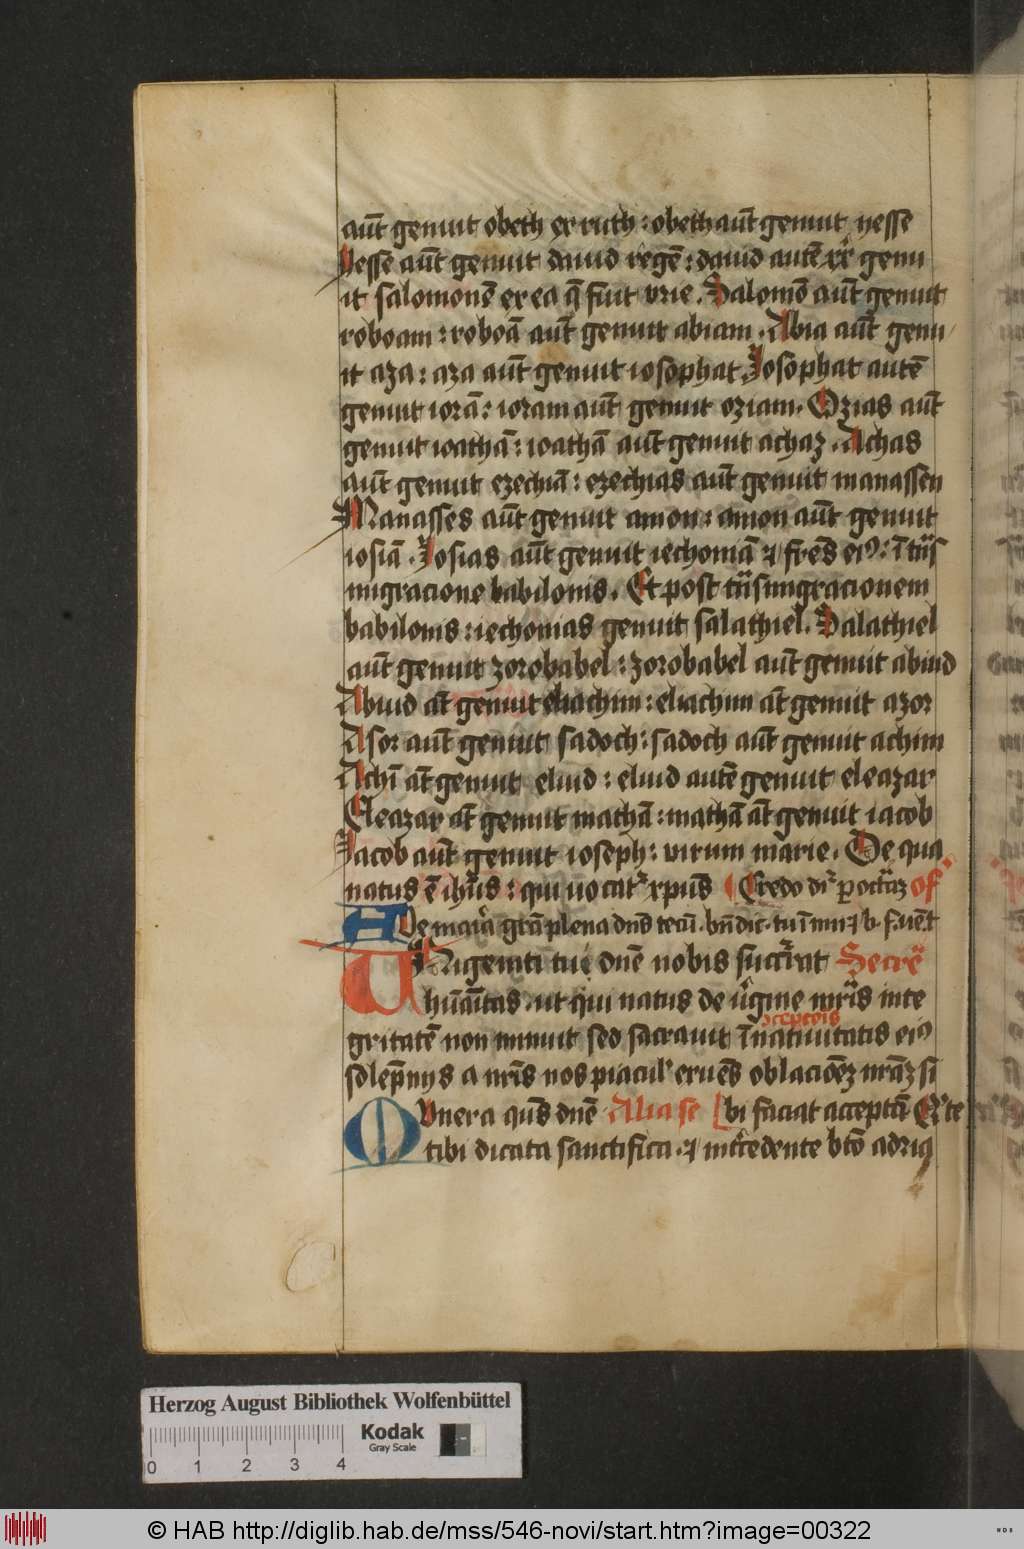 aūt genuit obeth ex ruth : obeth aūt genuit yesse
Yesse aūt genuit dauid regē : dauid autē rex genu
it salomonē ex ea q̄ fuit vrie . Salomō aūt genuit
roboam : roboā aūt genuit abiam . Abia aūt genu
it aza : aza aūt genuit iosophat Josophat autē
genuit iorā : ioram aūt genuit oziam . Ozias aūt
genuit ioathā : ioathā aūt genuit achaz . Achas
aūt genuit ezechiā : ezechias aūt genuit manassen
Manasses aūt genuit amon : amon aūt genuit
iosiā . Josias aūt genuit iechoniā ⁊ fr̄es eiꝰ : ī t̄ns
migracione babilonis . Et post t̄nsmigracionem
babilonis : iechonias genuit salathiel . Salathiel
aūt genuit zorobabel : zorobabel aūt genuit abiud
Abiud at̄ genuit eliachim : eliachim at̄ genuit azor
Asor aūt genuit sadoch : sadoch aūt genuit achim
Achī at̄ genuit eliud : eliud autē genuit eleazar
Eleazar at̄ genuit mathā : mathā at̄ genuit iacob
Jacob aūt genuit ioseph : virum marie . De qua
natus ē ih̄us : qui uocat᷑ xp̄us Credo dr̄ of
Aue maria gr̄a plena dn̄s tecū . bn̄dic . tu ī
Unigeniti tui dn̄e nobis succurrat Secre
hūāitas . ut qui natus de v̄gine mr̄is inte
gritatē non minuit sed sacrauit ī natiuitatis eiꝰ
solēpnijs a nr̄is nos piacul᷑ eruēs oblacōēz nr̄āz si
Munera qūs dn̄e Alia se bi faciat acceptā Q᷑ te
tibi dicata sanctifica . ⁊ int̄cedente bt̄o adriā
Herzog August Bibliothek Wolfenbüttel
Kodak
Gray Scale
0 1 2 3 4
© HAB http://diglib.hab.de/mss/546-novi/start.htm?image=00322